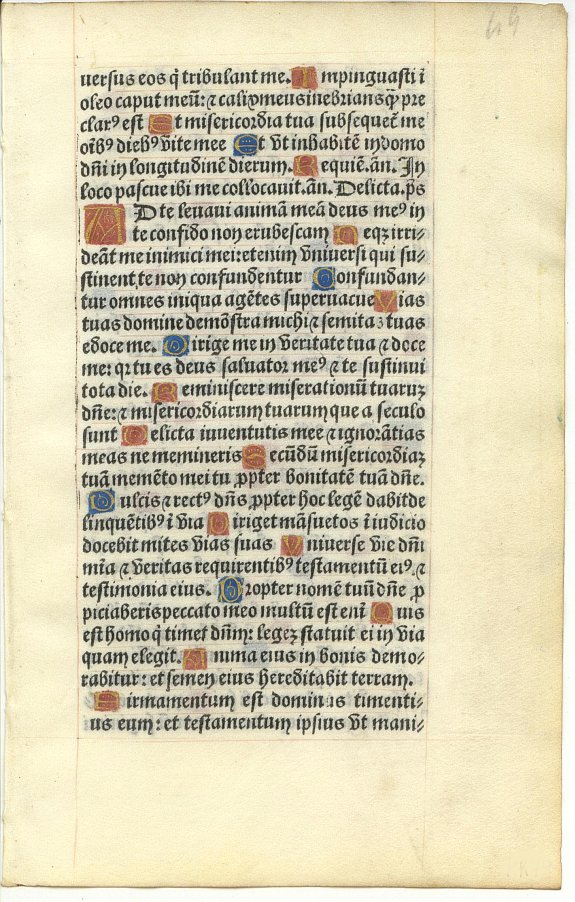 uersus eos q̄ tribulant me. Impinguasti ī
oleo caput meū: ⁊ calix meus inebrians q̄ pre
clarꝰ est Et misericordia tua subsequet̄ me
oīb⁹ dieb⁹ vite mee Et vt inhabitē in domo
dn̄i in longitudinē dierum. Requiē. an̄. In
loco pascue ibi me collocauit. an̄. Delicta. p̄s
AD te leuaui animā meā deus me⁹ in
te confido non erubescam Neqꝫ irri⸗
deāt me inimici mei: etenim vniuersi qui su⸗
stinent te non confundentur Confundan⸗
tur omnes iniqua agētes superuacue Vias
tuas domine demōstra michi ⁊ semitas tuas
edoce me. Dirige me in veritate tua ⁊ doce
me: qr tu es deus saluator me⁹ ⁊ te sustinui
tota die. Reminiscere miserationū tuaruꝫ
dn̄e: ⁊ misericordiarum tuarum que a seculo
sunt Delicta iuuentutis mee ⁊ ignorātias
meas ne memineris Secūdū misericordiaꝫ
tuā memēto mei tu ꝓpter bonitatē tuā dn̄e.
Dulcis ⁊ rect⁹ dn̄s ꝓpter hoc legē dabit de
linquētib⁹ ī via Diriget māsuetos ī iudicio
docebit mites vias suas Vniuerse vie dn̄i
mīa ⁊ veritas requirentib⁹ testamentū ei⁹. ⁊
testimonia eius. Propter nomē tuū dn̄e ꝓ
piciaberis peccato meo multū est enī Quis
est homo q̄ timet dn̄m: legeꝫ statuit ei in via
quam elegit. Anima eius in bonis demo⸗
rabitur: et semen eius hereditabit terram.
Firmamentum est dominus timenti⸗
us eum: et testamentum ipsius vt mani⸗